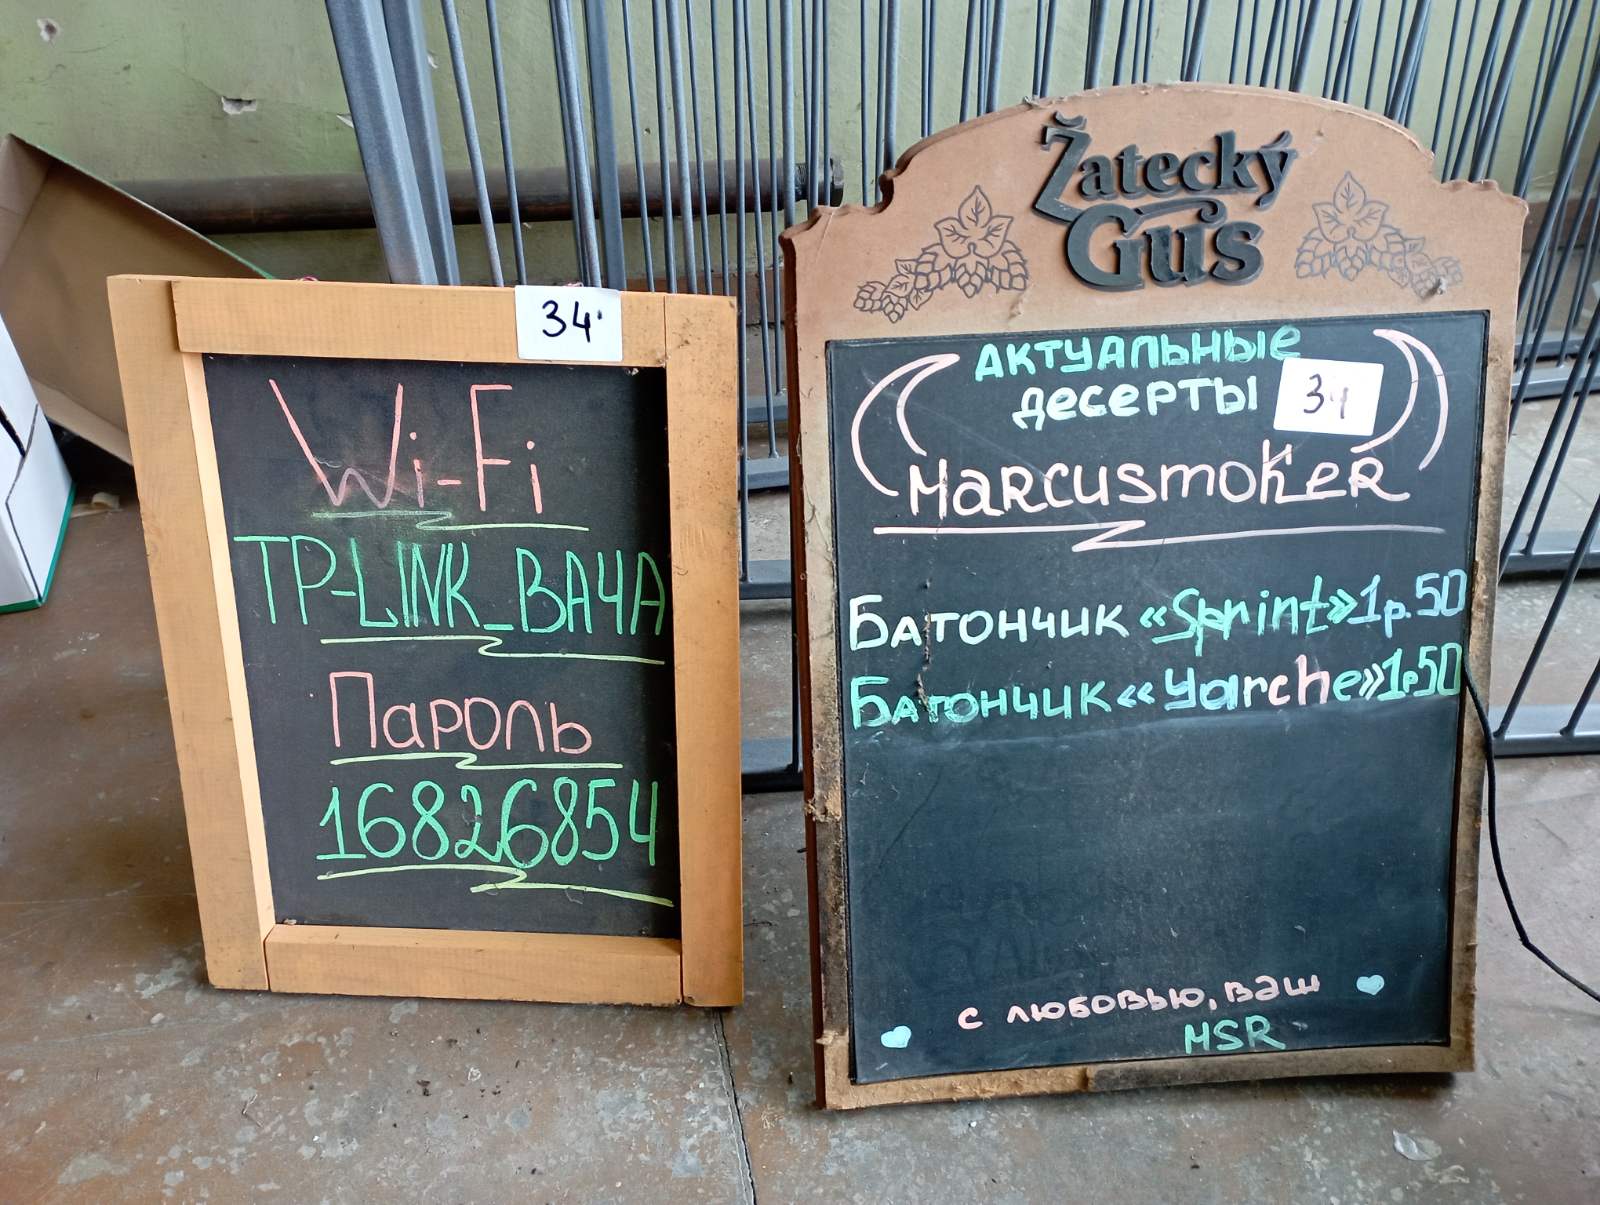 34
Wi-Fi
TP-LINK_ВАЧА
Пароль
16826854
Žatecký
Gus
АКТУАЛЬНЫЕ
десерты
34
MARCUSMOKER
Батончик «Sprint» 1р.50
Батончик «Yarche» 1р.50
с любовью, ваш
MSR